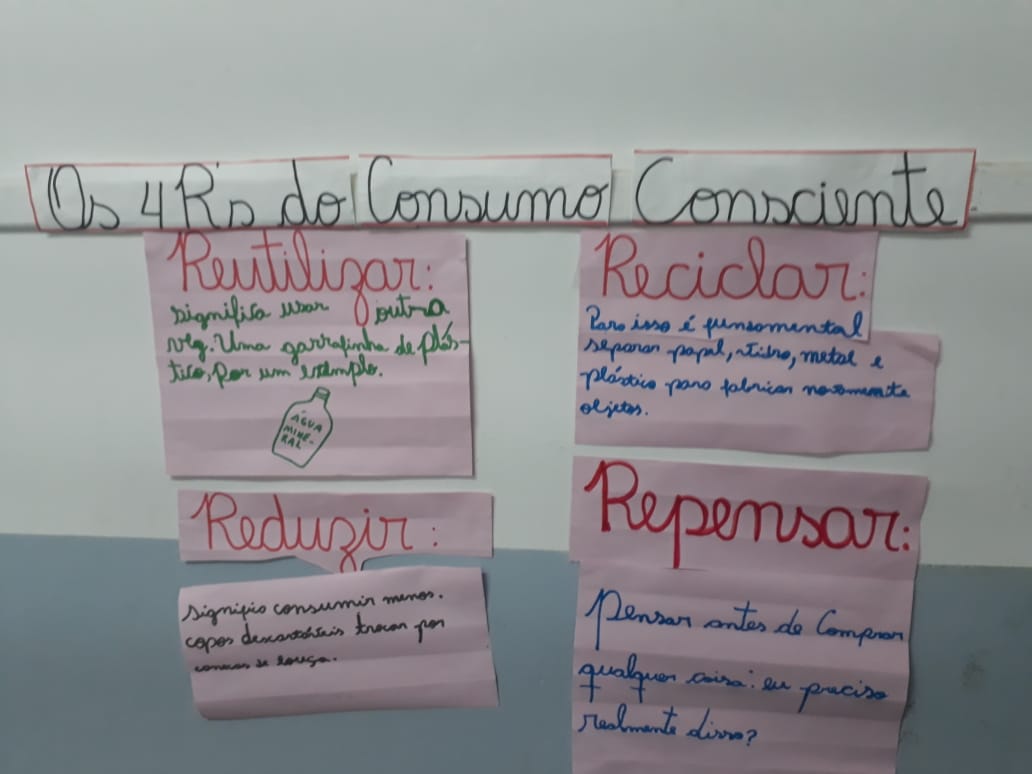 Os 4 R's do Consumo Consciente.
Reutilizar:
significa usar outra
vez. Uma garrafinha de plás-
tico, por um exemplo.
ÁGUA
MINE-
RAL
Reciclar:
Para isso é funsomental
separar papel, vidro, metal e
plástico para fabricar novamente
objetos.
Reduzir:
significa consumir menos.
copos descartáveis trocar por
de louça.
Repensar:
Pensar antes de Comprar
qualquer coisa: eu preciso
realmente disso?